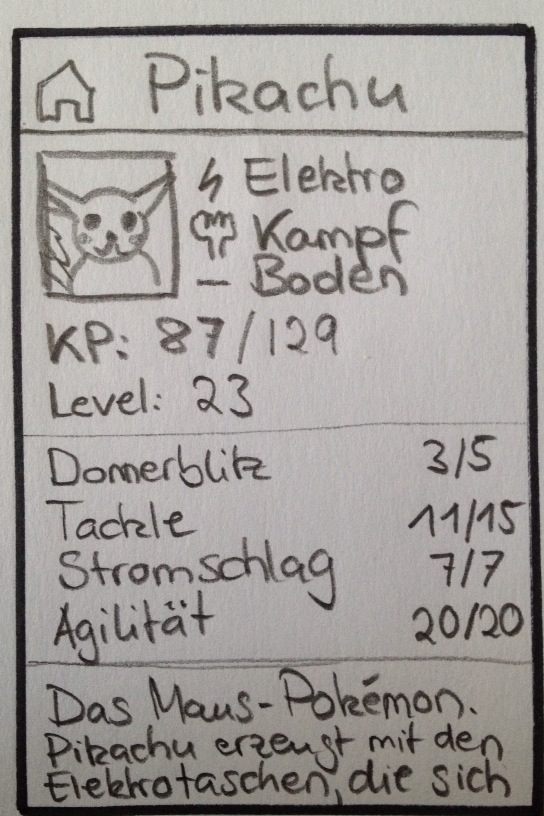 Pikachu
Elektro
Kampf
– Boden
KP: 87/129
Level: 23
Donnerblitz 3/5
Tackle 11/15
Stromschlag 7/7
Agilität 20/20
Das Maus-Pokémon.
Pikachu erzeugt mit den
Elektrotaschen, die sich